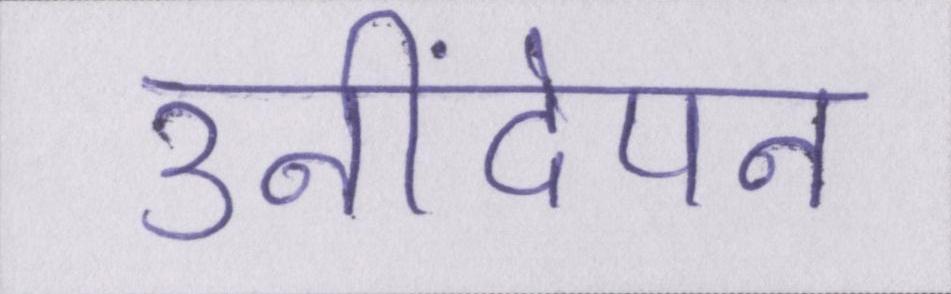 उनींदेपन